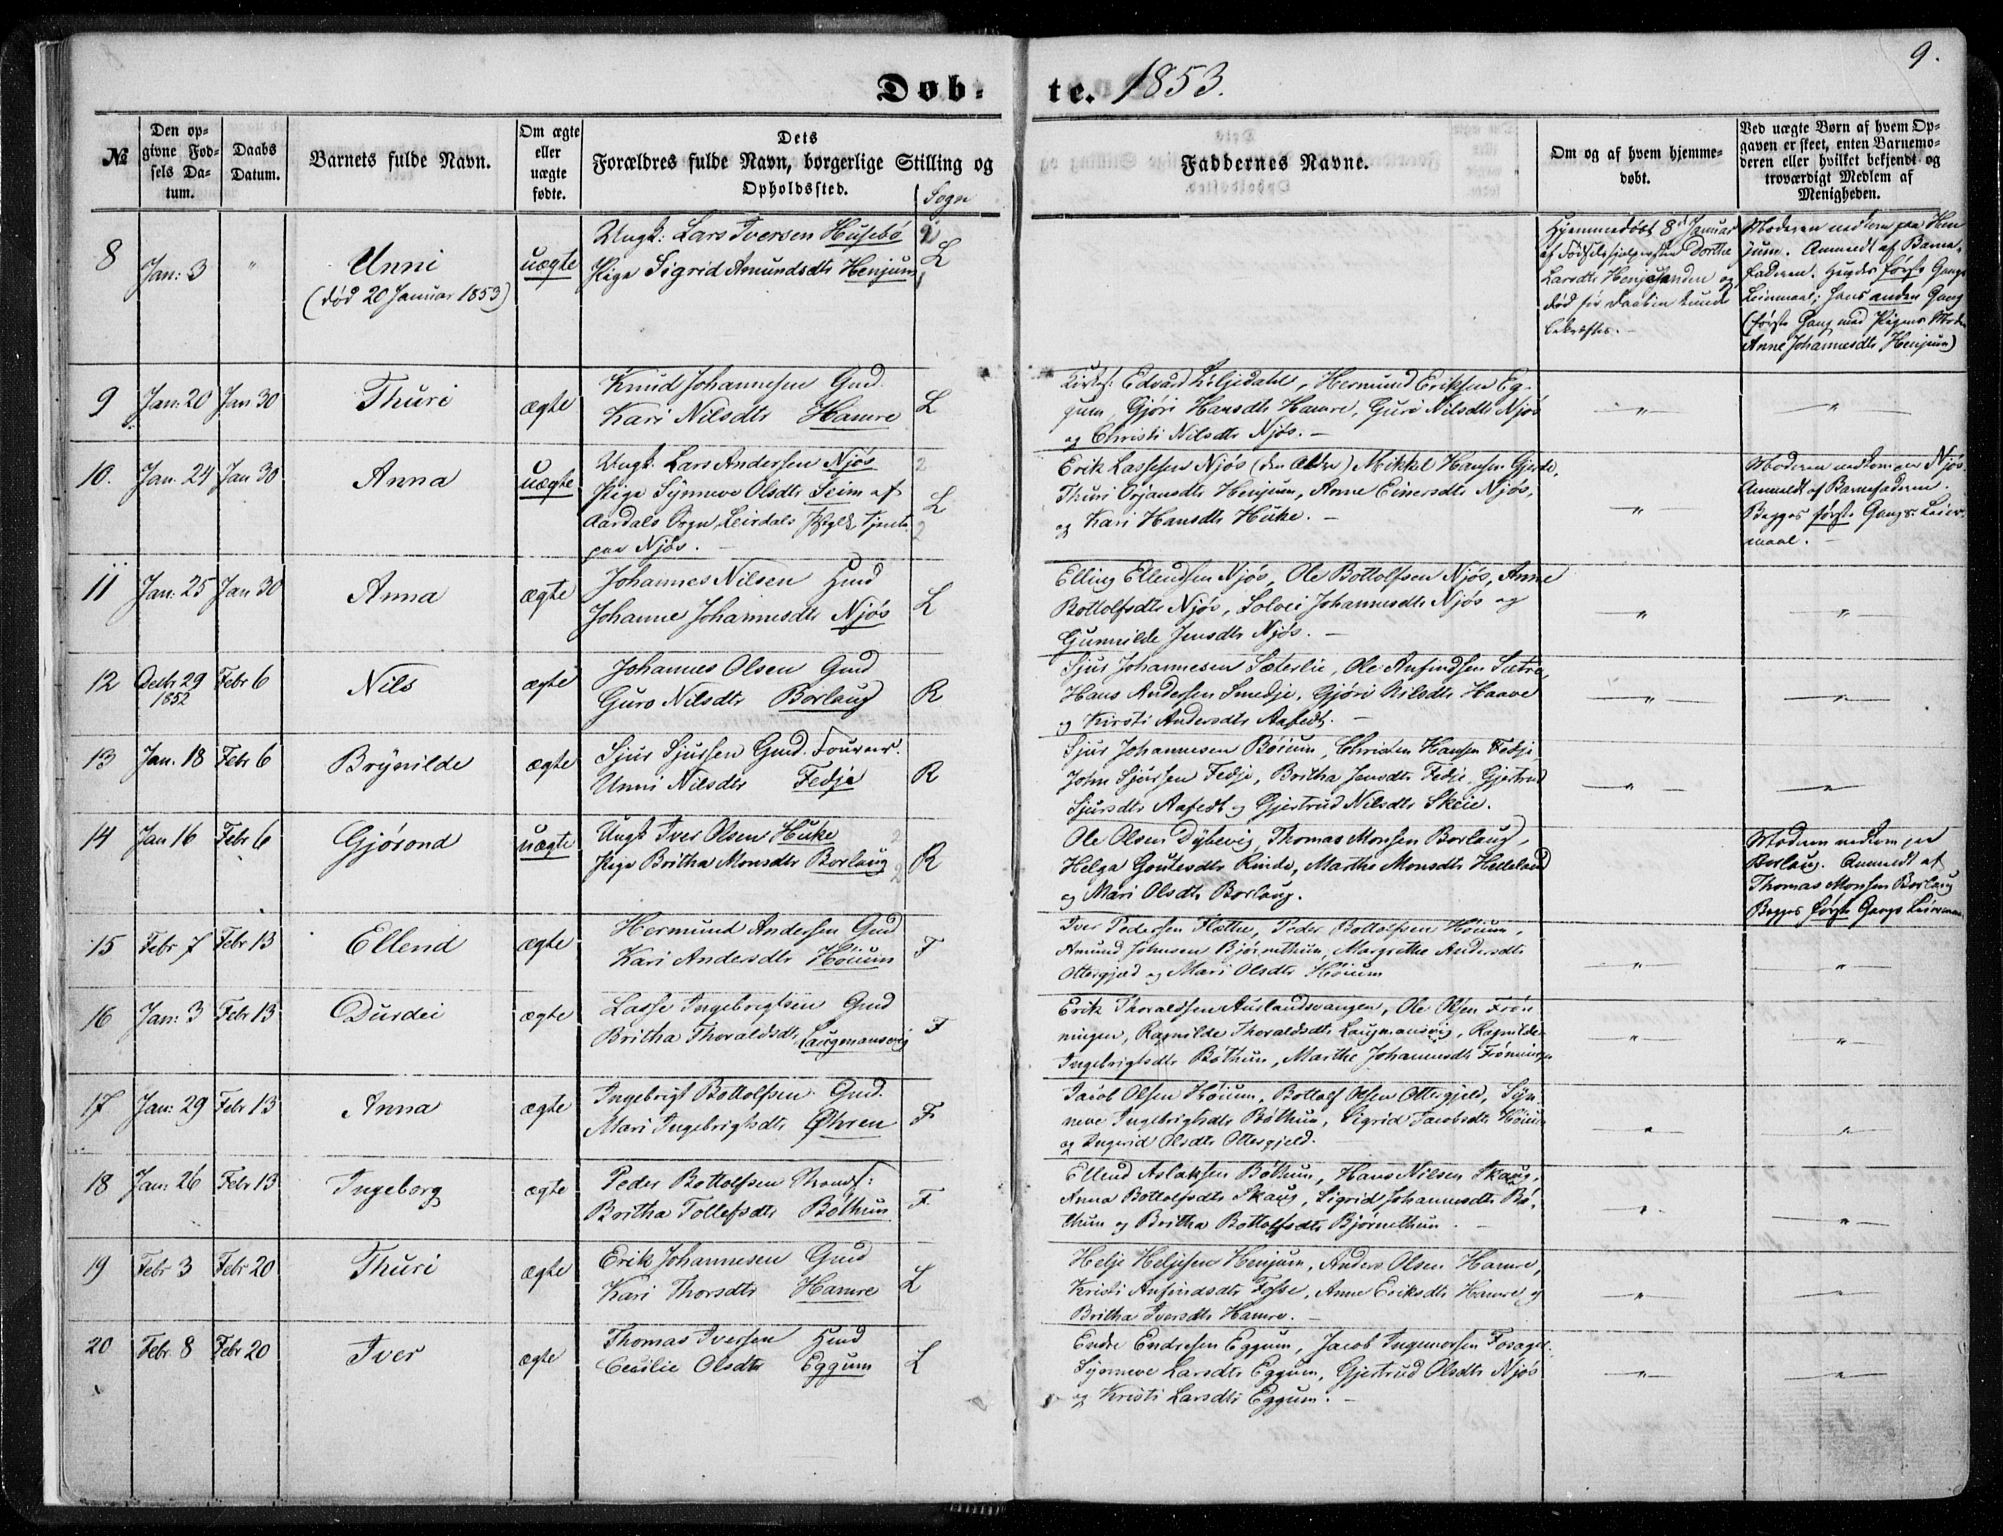 9.
Døb- te. 1853.
№
Den op-
givne Fød-
sels Da-
tum.
Daabs
Datum.
Barnets fulde Navn.
Om ægte
eller
uægte
fødte.
Dets
Forældres fulde Navn, borgerlige Stilling og
Opholdssted.
Sogn
Faddernes Navne.
Om og af hvem hjemme-
døbt.
Ved uægte Børn af hvem Op-
gaven er skeet, enten Barnemo-
deren eller hvilket bekjendt og
troværdigt Medlem af
Menigheden.
8 Jan: 3 " Unni
(død 20 Januar 1853)
uægte
Ungk: Lars Iversen Husebø 2
Pige Sigrid Amundsdtr Henjum 1
L
Hjemmedøbt 8d Januar
af Fødselshjælpersken Dorthe
Larsdtr Henjesanden og
død før Daaben kunde
bekræftes.-
Moderen nedkom paa Hen
jum. Anmeldt af Barne-
faderen. Hendes første Gangs
Leiermaal; hans anden Gang
(første Gang med Pigens Moder
Anne Johannesdtr Henjum)
9 Jan: 20 Jan 30 Thuri ægte
Knud Johannesen Gmd.
Kari Nilsdtr Hamre
L
Kirkes: Edvard Liljedahl, Hermund Eriksen Eg-
gum, Gjøri Hansdtr Hamre, Guro Nilsdtr Njøs
og Christi Nilsdtr Njøs. -
" "
10. Jan. 24 Jan 30 Anna uægte
Ungk. Lars Andersen Njøs 2
Pige Synneve Olsdtr Seim af
Aardals Sogn, Leirdals Prgjld. Tjenste
paa Njøs. - 2
L
Erik Lassesen Njøs (den Ældre) Mikkel Hansen Gjerde,
Thuri Orjansdtr Henjum, Anne Einersdtr Njøs,
og Kari Hansdtr Huke. -
"
Moderen nedkom paa Njøs
Anmeldt af Barnefaderen.
Begges første Gangs Leier-
maal. -
11 Jan: 25 Jan 30 Anna ægte
Johannes Nilsen Hmd
Johanne Johannesdtr Njøs
L
Elling Ellendsen Njøs, Ole Bottolfsen Njøs, Anne
Bottolfsdtr Njøs, Solvei Johannesdtr Njøs og
Gunnilde Jensdtr Njøs. -
" "
12 Decbr 29 Febr 6 Nils ægte
1852
Johannes Olsen Gmd
Guro Nilsdtr Borlaug
R
Sjur Johannesen Sæterlie, Ole Anfindsen Sætre,
Hans Andersen Smedje, Gjøri Nilsdtr Haave
og Kirsti Andersdtr Aafedt. -
" "
13 Jan. 18 Febr 6 Brynilde ægte
Sjur Sjursen Gmd. Fourer.
Unni Nilsdtr Fedje
R
Sjur Johannesen Bøium, Christen Hansen Fedje,
John Sjursen Fedje, Britha Jensdtr Fedje, Gjertrud
Sjursdtr Aafedt og Gjertrud Nilsdtr Skeie.
" "
14 Jan 16 Febr 6 Gjørond uægte
Ungk Iver Olsen Huke 2
Pige Britha Monsdtr Borlaug 2
R
Ole Olsen Dybevig, Thomas Monsen Borlaug,
Helga Goutesdtr Rinde, Marthe Monsdtr Hedeland
og Mari Olsdtr Borlaug.
Moderen nedkom paa
Borlaug. Anmeldt af
Thomas Monsen Borlaug
Begges første Gangs Leiermaal.
15 Febr 7 Febr 13 Ellend ægte
Hermund Andersen Gmd
Kari Andersdtr Høium
F
Iver Pedersen Flæthe, Peder Bottolfsen Høium,
Amund Johnsen Bjørnethun, Margrethe Andersdtr
Ottergjæld og Mari Olsdtr Høium
" "
16 Jan: 3 Febr 13 Durdei ægte
Lasse Ingebrigtsen Gmd
Britha Thoraldsdtr Laugmansvig
F
Erik Thoraldsen Aurlandsvangen, Ole Olsen Frøn-
ningen, Ragnilde Thoraldsdtr Laugmansvig, Ragnilde
Ingebrigtsdtr Bøthun, Marthe Johannesdtr Frønningen
" "
17 Jan: 29 Febr 13 Anna ægte
Ingebrigt Bottolfsen Gmd.
Mari Ingebrigtsdtr Øhren
F
Jacob Olsen Høium, Bottolf Olsen Ottergjeld, Syn-
neve Ingebrigtsdtr Bøthun, Sigrid Jacobsdtr Høium
og Ingerid Olsdtr Ottergjeld.
" "
18 Jan: 26 Febr 13 Ingeborg ægte
Peder Bottolfsen Strands:
Britha Tollefsdtr Bøthun
F.
Ellend Aslaksen Bøthun, Hans Nilsen Skaug,
Anna Bottolfsdtr Skaug, Sigrid Johannesdtr Bø-
thun og Britha Bottolfsdtr Bjørnethun.
" "
19 Febr 3 Febr 20 Thuri ægte
Erik Johannesen Gmd
Kari Thorsdtr Hamre
L
Helje Heljesen Henjum, Anders Olsen Hamre,
Kristi Anfindsdtr Fosse, Anne Eriksdtr Hamre og
Britha Iversdtr Hamre. -
" "
20 Febr. 8 Febr 20 Iver ægte
Thomas Iversen Hmd
Cecilie Olsdtr Eggum
L
Endre Endresen Eggum, Jacob Ingemorsen
Synneve Larsdtr Eggum, Gjertrud Olsdtr Njøs
og Kristi Larsdtr Eggum. -
" "